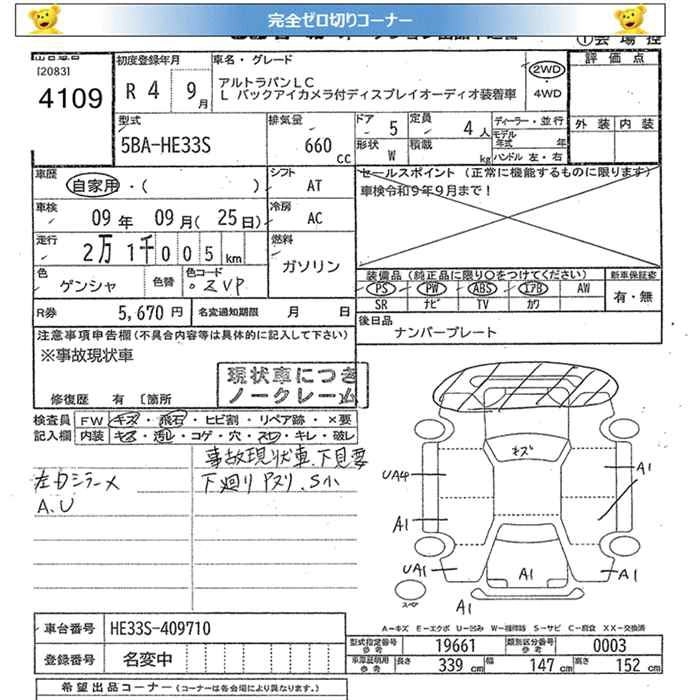 完全ゼロ切りコーナー
[2083]
4109
初度登録年月
R 4 9月
車名・グレード
アルトラパンLC
L バックアイカメラ付ディスプレイオーディオ装着車
2WD
・
4WD
①会場控
評価点
外装 内装
型式
5BA-HE33S
排気量
660 cc
ドア 5
定員 4人
形状 W
積載 kg
ディーラー・並行
モデル年式 年
ハンドル 左・右
車歴
自家用・( )
シフト
AT
セールスポイント (正常に機能するものに限ります)
車検令和9年9月まで!
車検
09年 09月(25日)
冷房
AC
走行
2万1千005km
燃料
ガソリン
色
ゲンシャ
色替
色コード
ZVP
装備品(純正品に限り○をつけてください)
新車保証書
PS PW ABS エアB AW
SR ナビ TV カワ
有・無
R券 5,670円
名変通知期限 月 日
後日品
ナンバープレート
注意事項申告欄(不具合内容等は具体的に記入して下さい)
※事故現状車
現状車につき
ノークレーム
修復歴 有 [箇所
検査員
記入欄
FW キズ・飛石・ヒビ割・リペア跡・×要
内装 キズ・汚レ・コゲ・穴・スロ・キレ・破レ
事故現状車、下見要
左ドアミラーメ
下廻りサビ、S小
A.U
キズ
UA4
A1
A1
UA1
A1
A1
A1
スペア
A―キズ E―エクボ U―凹み W―補修跡 S―サビ C―腐食 XX―交換済
車台番号 HE33S-409710
登録番号 名変中
型式指定番号 参考 19661
類別区分番号 参考 0003
車庫証明用 参考 長さ 339cm 幅 147cm 高さ 152cm
希望出品コーナー(コーナーは各会場により異なります。)